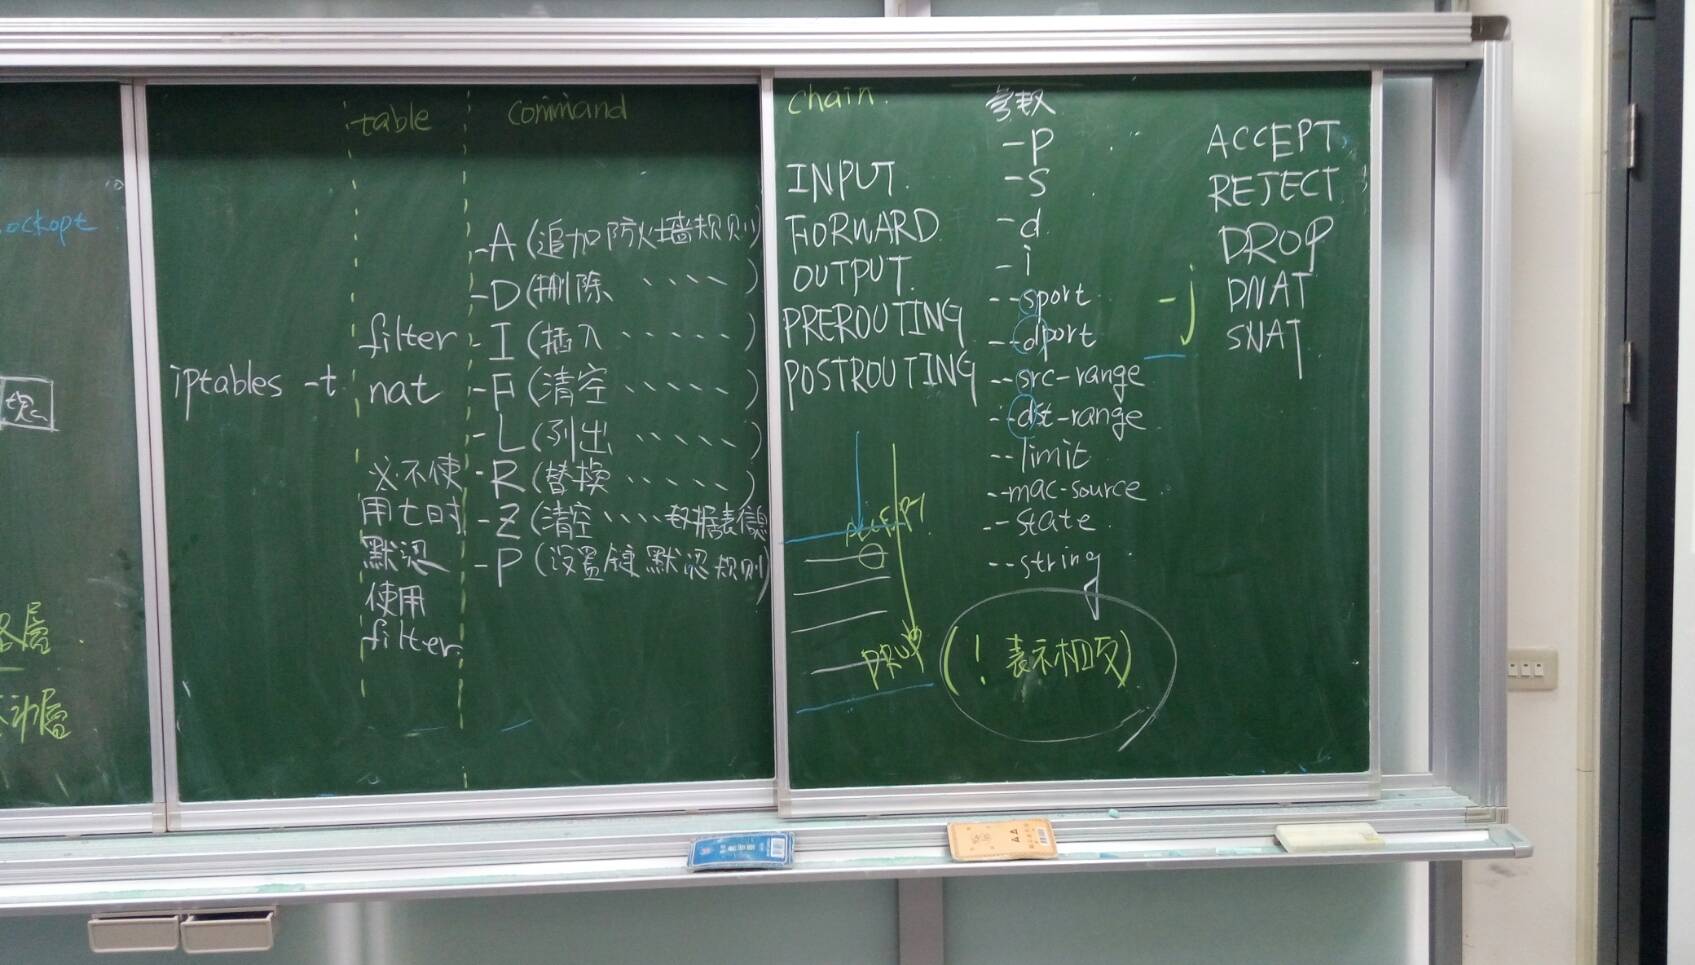 ockopt
层
层
table
command
iptables -t
filter
nat
※不使
用t时
默认
使用
filter
-A (追加防火墙规则)
-D (删除 、、、、 )
-I (插入 、、、、、 )
-F (清空 、、、、、 )
-L (列出 、、、、、 )
-R (替换 、、、、、 )
-Z (清空、、、、数据表信息
-P (设置链默认规则)
chain
INPUT
FORWARD
OUTPUT
PREROUTING
POSTROUTING
ACCEPT
DROP
参数
-p
-s
-d
-i
--sport
--dport
--src-range
--dst-range
--limit
--mac-source
--state
--string
(! 表示相反)
-j
ACCEPT
REJECT
DROP
DNAT
SNAT